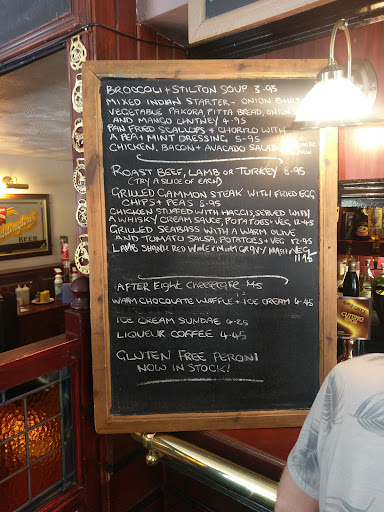 BROCCOLI + STILTON SOUP 3.95
MIXED INDIAN STARTER - ONION BHAJI
VEGETABLE PAKORA, PITTA BREAD, ONION
AND MANGO CHUTNEY 4.95
PAN FRIED SCALLOPS + CHORIZO WITH
A PEA + MINT DRESSING 5.95
CHICKEN, BACON + AVACADO SALAD
ROAST BEEF, LAMB OR TURKEY 8.95
(TRY A SLICE OF EACH)
GRILLED GAMMON STEAK WITH FRIED EGG
CHIPS + PEAS 8.95
CHICKEN STUFFED WITH HAGGIS, SERVED WITH
A WHISKY CREAM SAUCE, POTATOES + VEG, 12.45
GRILLED SEABASS WITH A WARM OLIVE
AND TOMATO SALSA, POTATOES + VEG 12.95
LAMB SHANK RED WINE + MINT GRAVY / MASH + VEG
11.95
AFTER EIGHT CHEESECAKE 4.45
WARM CHOCOLATE WAFFLE + ICE CREAM 4.45
ICE CREAM SUNDAE 4.25
LIQUEUR COFFEE 4.45
GLUTEN FREE PERONI
NOW IN STOCK!
BEER